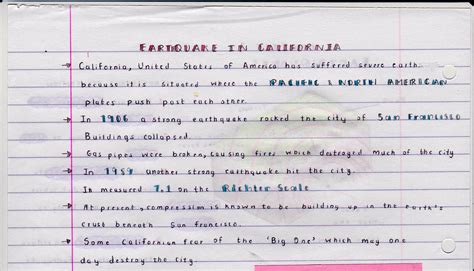 EARTHQUAKE IN CALIFORNIA
→ California, United States of America has suffered severe earth-
because it is situated where the PACIFIC & NORTH AMERICAN
plates push past each other.
→ In 1906 a strong earthquake rocked the city of San Francisco
Buildings collapsed.
→ Gas pipes were broken, causing fires which destroyed much of the city
→ In 1989 another strong earthquake hit the city.
It measured 7.1 on the Richter Scale
→ At present, compression is known to be building up in the Earth's
crust beneath San francisco.
→ Some Californian fear of the 'Big One' which may one
day destroy the city.